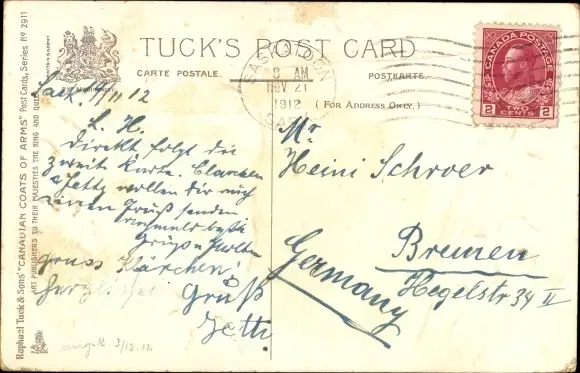 TUCK'S POST CARD
CARTE POSTALE. POSTKARTE.
( FOR ADDRESS ONLY. )
Raphael Tuck & Sons' "CANADIAN COATS OF ARMS" Post Cards, Series No 2911
ART PUBLISHERS TO THEIR MAJESTIES THE KING AND QUEEN
CANADA POSTAGE
2 TWO CENTS 2
SASKATOON
8 AM
NOV 21
1912
SASK
Sask. 11 12
L. H.
Direkt folgt die
zweit Karte.
& Jetty wollen dir auch
einen Gruß senden
Gruss Klärchen!
Herzlichst
Gruß
Jetti.
angek. 3/12.12
Mr
Heini Schroer
Bremen
Hegelstr 34 II
Germany